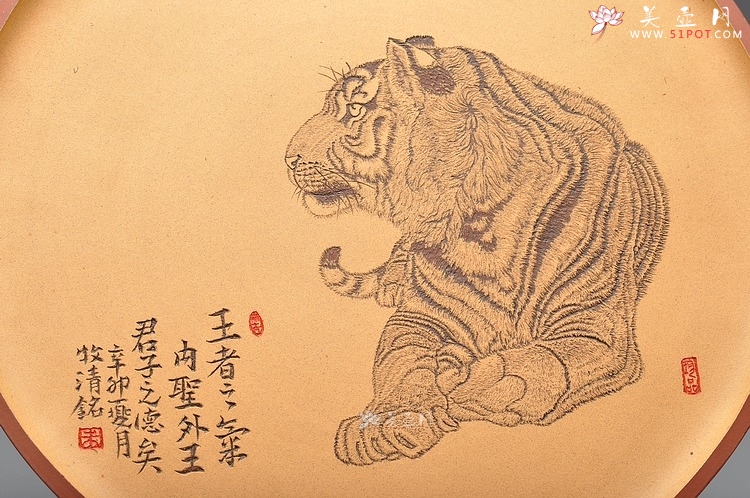 美壶月
WWW.51POT.COM
王者之氣
内聖外王
君子之德矣
辛卯
月
牧清銘